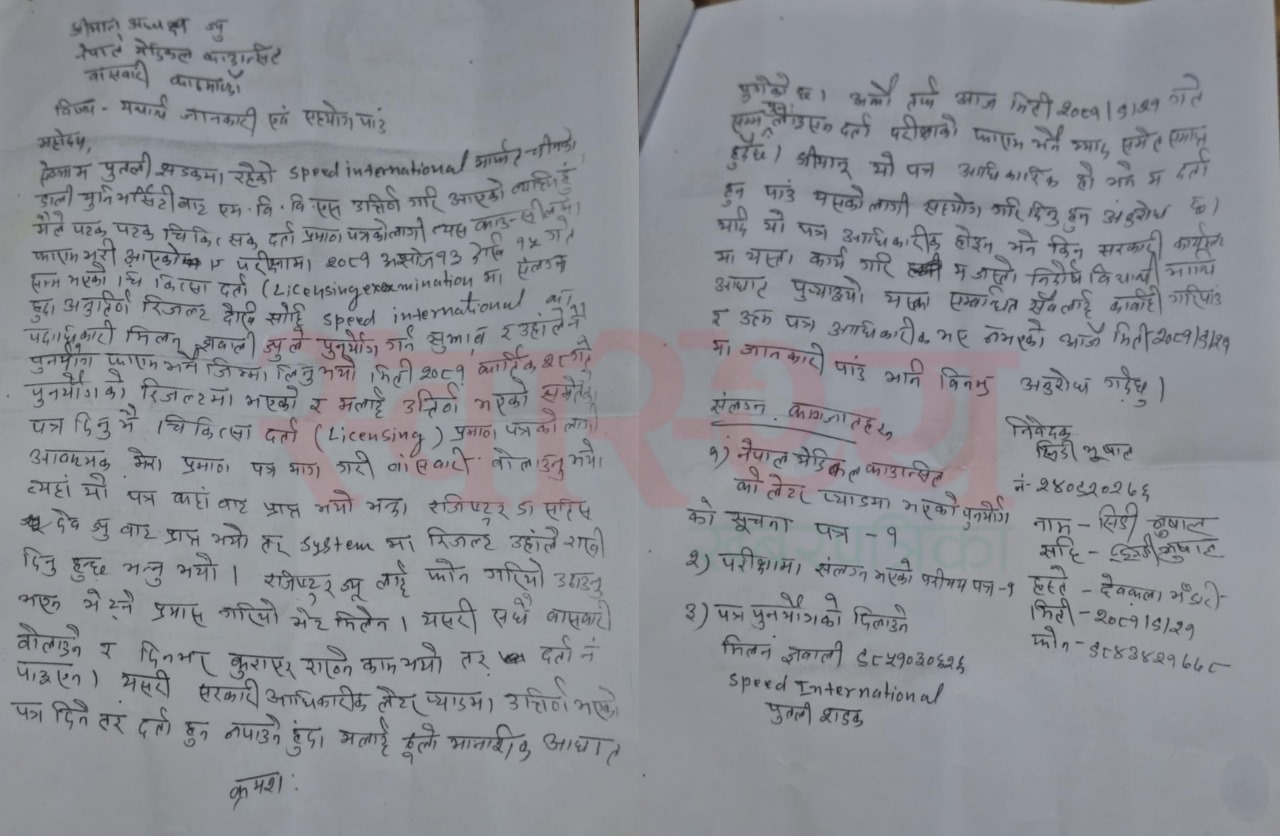 श्रीमान अध्यक्ष ज्यु
नेपाल मेडिकल काउन्सिल
वांसवारी काठमाडौँ
विषय - यथार्थ जानकारी एवं सहयोग पाउं
महोदय,
पुतली सडकमा रहेको speed international मार्फत चीनको
डाली युनिभर्सिटीबाट एम.वि.वि एस उत्तिर्ण गरि आएको व्यक्ति हुं
मैले पटक पटक चिकित्सक दर्ता प्रमाण पत्रको लागी त्यस काउन्सीलमा
फाराम भरी आएकोमा परीक्षामा २०८१ असोज १३ देखि १५ गते
सम्म भएको चिकित्सा दर्ता (Licensing examination मा संलग्न
हुदा अनुतिर्ण रिजल्ट देखि सोहि speed international का
पदाधिकारी मिलन ज्ञवाली ज्युले पुनर्योग गर्न सुझाव र उहांले नै
पुनर्योग फाराम भर्ने जिम्मा लिनु भयो मिती २०८१ कार्तिक २८ गते
पुनर्योगको रिजल्टमा भएको र मलाई उत्तिर्ण भएको समेतको
पत्र दिनु भै चिकित्सा दर्ता (Licensing) प्रमाण पत्रको लागी
आवश्यक मेरा प्रमाण पत्र माग गरी वांसवारी बोलाउनु भयो
त्यहां यो पत्र कहां बाट प्राप्त भयो भन्दा रजिष्ट्रर डा सतिस
देव ज्यु बाट प्राप्त भयो तर system मा रिजल्ट उहांले राखी
दिनु हुन्छ भन्नु भयो । रजिष्ट्रर ज्यू लाई फोन गरियो उठाउनु
भएन भेट्ने प्रयास गरियो भेट मिलेन । यसरी सधै वासवारी
बोलाउने र दिनभर कुराएर राख्ने काम भयो तर दर्ता नं
पाइएन । यसरी सरकारी आधिकारीक लेटर प्याडमा उत्तिर्ण भएको
पत्र दिने तर दर्ता हुन नपाउने हुंदा मलाई ठूलो मानसीक आघात
क्रमश:
पुगेको छ । अर्को तर्फ आज मिती २०८१/८/२१ गते
सम्म पुन लाइसेन्स दर्ता परीक्षाको फाराम भर्ने म्याद समेत समाप्त
हुदैछ । श्रीमान् यो पत्र आधिकारिक हो भने म दर्ता
हुन पाउं यसको लागी सहयोग गरि दिनु हुन अनुरोध छ ।
यदि यो पत्र आधिकारीक होइन भने किन सरकारी कार्यालय
मा यस्ता कार्य गरि म जस्तो निर्दोष विधार्थी माथि
आघात पुर्‍याइयो यसका सम्बन्धित सबैलाई कार्वाही गरिपाउं
र उक्त पत्र आधिकारीक भए नभएको आजै मिती २०८१/८/२१
मा जानकारी पाउं भनि विनम्र अनुरोध गर्दछु ।
संलग्न कागजातहरु
१) नेपाल मेडिकल काउन्सिल
को लेटर प्याडमा भएको पुनर्योग
को सूचना पत्र - १
२) परीक्षामा संलग्न भएको परीचय पत्र - १
३) पत्र पुनर्योगको दिलाउने
मिलन ज्ञवाली ९८५१०३०६२६
speed International
पुतली सडक
निवेदक
सिडी भुषाल
नं - २४०८२०२७६
नाम - सिडी भुषाल
सहि -
हस्ते - देवकला भँडारी
मिती - २०८१/८/२१
फोन - ९८४३४२१७७८
स्वास्थ्य
खबरपत्रिका